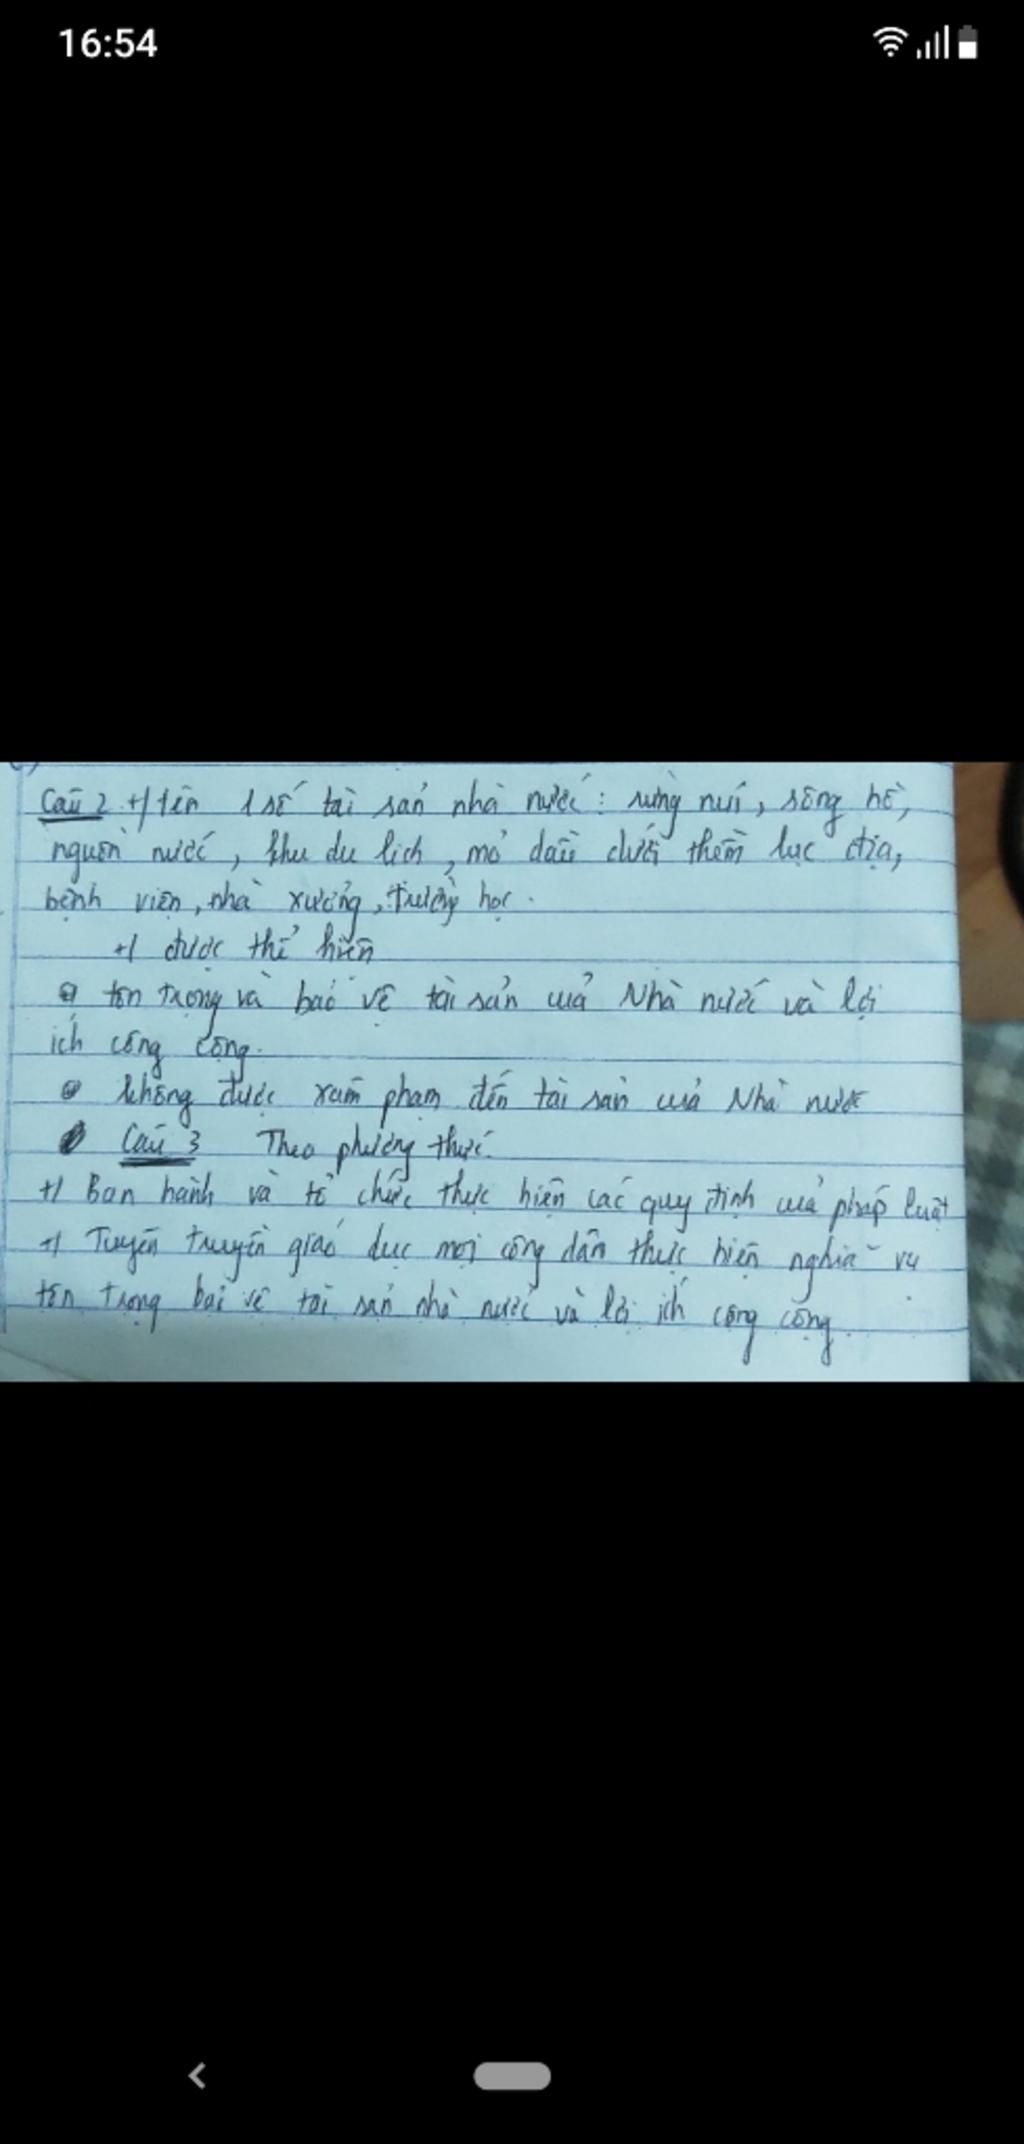 16:54
Câu 2 +/ tên 1 số tài sản nhà nước : rừng núi, sông hồ,
nguồn nước, khu du lịch, mỏ dầu dưới thềm lục địa,
bệnh viện, nhà xưởng, trường học.
+/ được thể hiện
tôn trọng và bảo vệ tài sản của Nhà nước và lợi
ích công cộng.
không được xâm phạm đến tài sản của Nhà nước
Câu 3 Theo phương thức.
+/ Ban hành và tổ chức thực hiện các quy định của pháp luật
+/ Tuyên truyền giáo dục mọi công dân thực hiện nghĩa vụ
tôn trọng bảo vệ tài sản nhà nước và lợi ích công cộng.